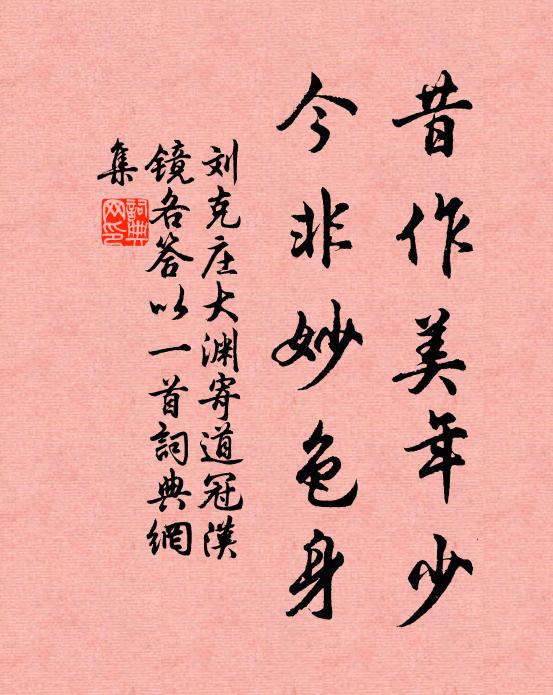 昔作美年少
今非妙色身
刘克庄大渊寄道冠汉
镜各答以一首詞典網
集
詞典网印